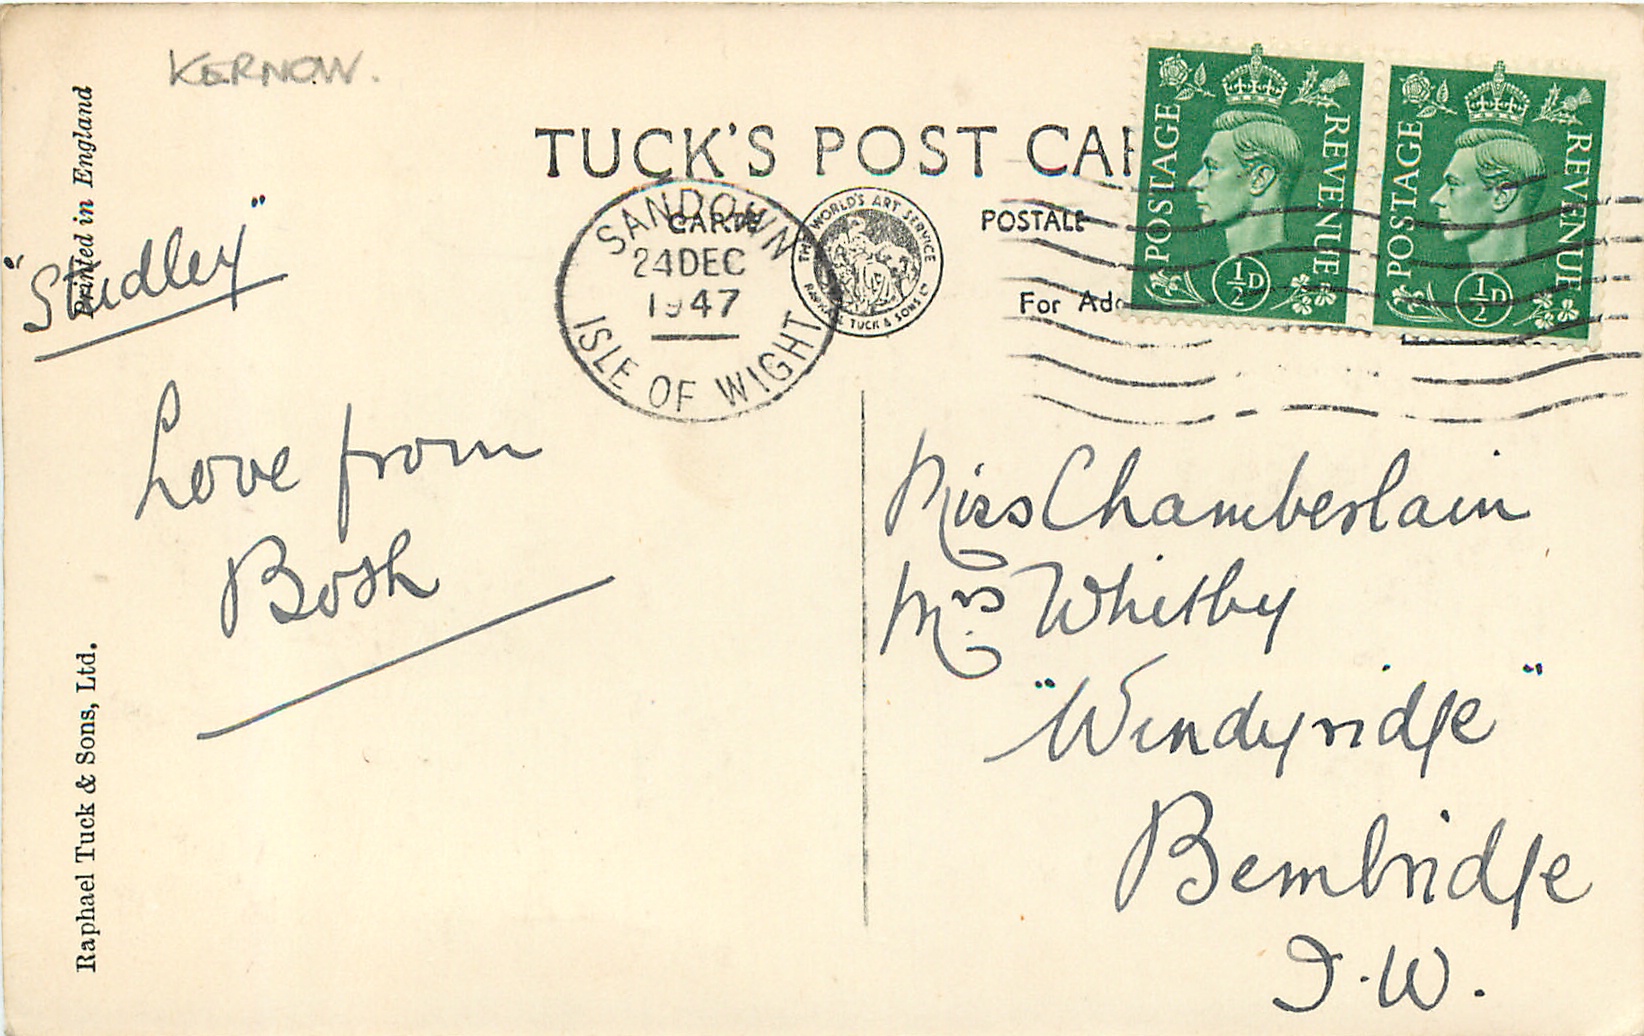 KERNOW.
Printed in England
"Studley"
Love from
Bosh
Raphael Tuck & Sons, Ltd.
TUCK'S POST CAR
CARTE POSTALE
For Add
SANDOWN
24 DEC
1947
ISLE OF WIGHT
THE WORLD'S ART SERVICE
RAPHAEL TUCK & SONS LTD
POSTAGE REVENUE
½D
POSTAGE REVENUE
½D
Miss Chamberlain
Mrs Whitby
"Windyridge"
Bembridge
I.W.